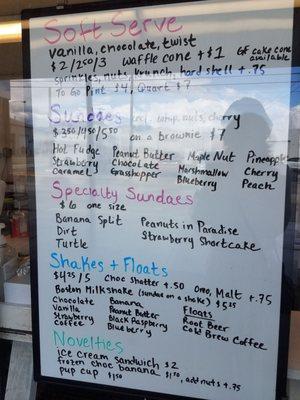 Soft Serve
vanilla, chocolate, twist
$2/250/3 waffle cone +$1 GF cake cone available
sprinkles, nuts, krunch, hard shell +.75
To Go Pint $4, Quart $7
Sundaes whip, nuts, cherry
on a brownie $7
Hot Fudge Peanut Butter Maple Nut Pineapple
Strawberry Chocolate Marshmallow Cherry
Caramel Grasshopper Blueberry Peach
Specialty Sundaes
$6 one size
Banana Split Peanuts in Paradise
Dirt Strawberry Shortcake
Turtle
Shakes + Floats
$4.25/5 Choc Shatter +.50 Oreo, Malt +.75
Boston Milkshake (sundae on a shake) $5.25
Chocolate Banana Floats
Vanilla Peanut Butter Root Beer
Strawberry Black Raspberry Cold Brew Coffee
Coffee Blueberry
Novelties
ice cream sandwich $2
frozen choc banana $1.50, add nuts +.75
pup cup $1.50